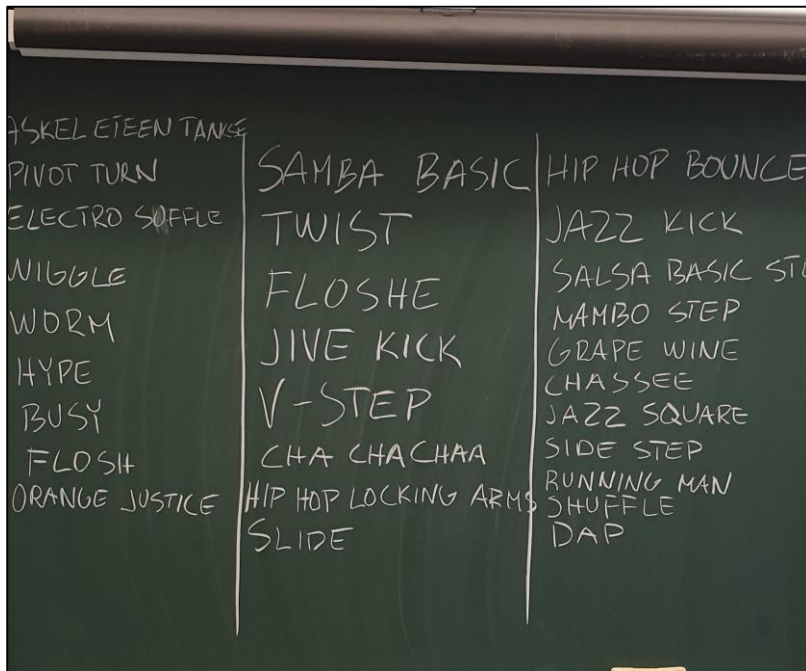 ASKEL ETEEN TANKSE
PIVOT TURN
ELECTRO SUFFLE
WIGGLE
WORM
HYPE
BUSY
FLOSH
ORANGE JUSTICE
SAMBA BASIC
TWIST
FLOSHE
JIVE KICK
V-STEP
CHA CHACHAA
HIP HOP LOCKING ARMS
SLIDE
HIP HOP BOUNCE
JAZZ KICK
SALSA BASIC STE
MAMBO STEP
GRAPE WINE
CHASSEE
JAZZ SQUARE
SIDE STEP
RUNNING MAN
SHUFFLE
DAP